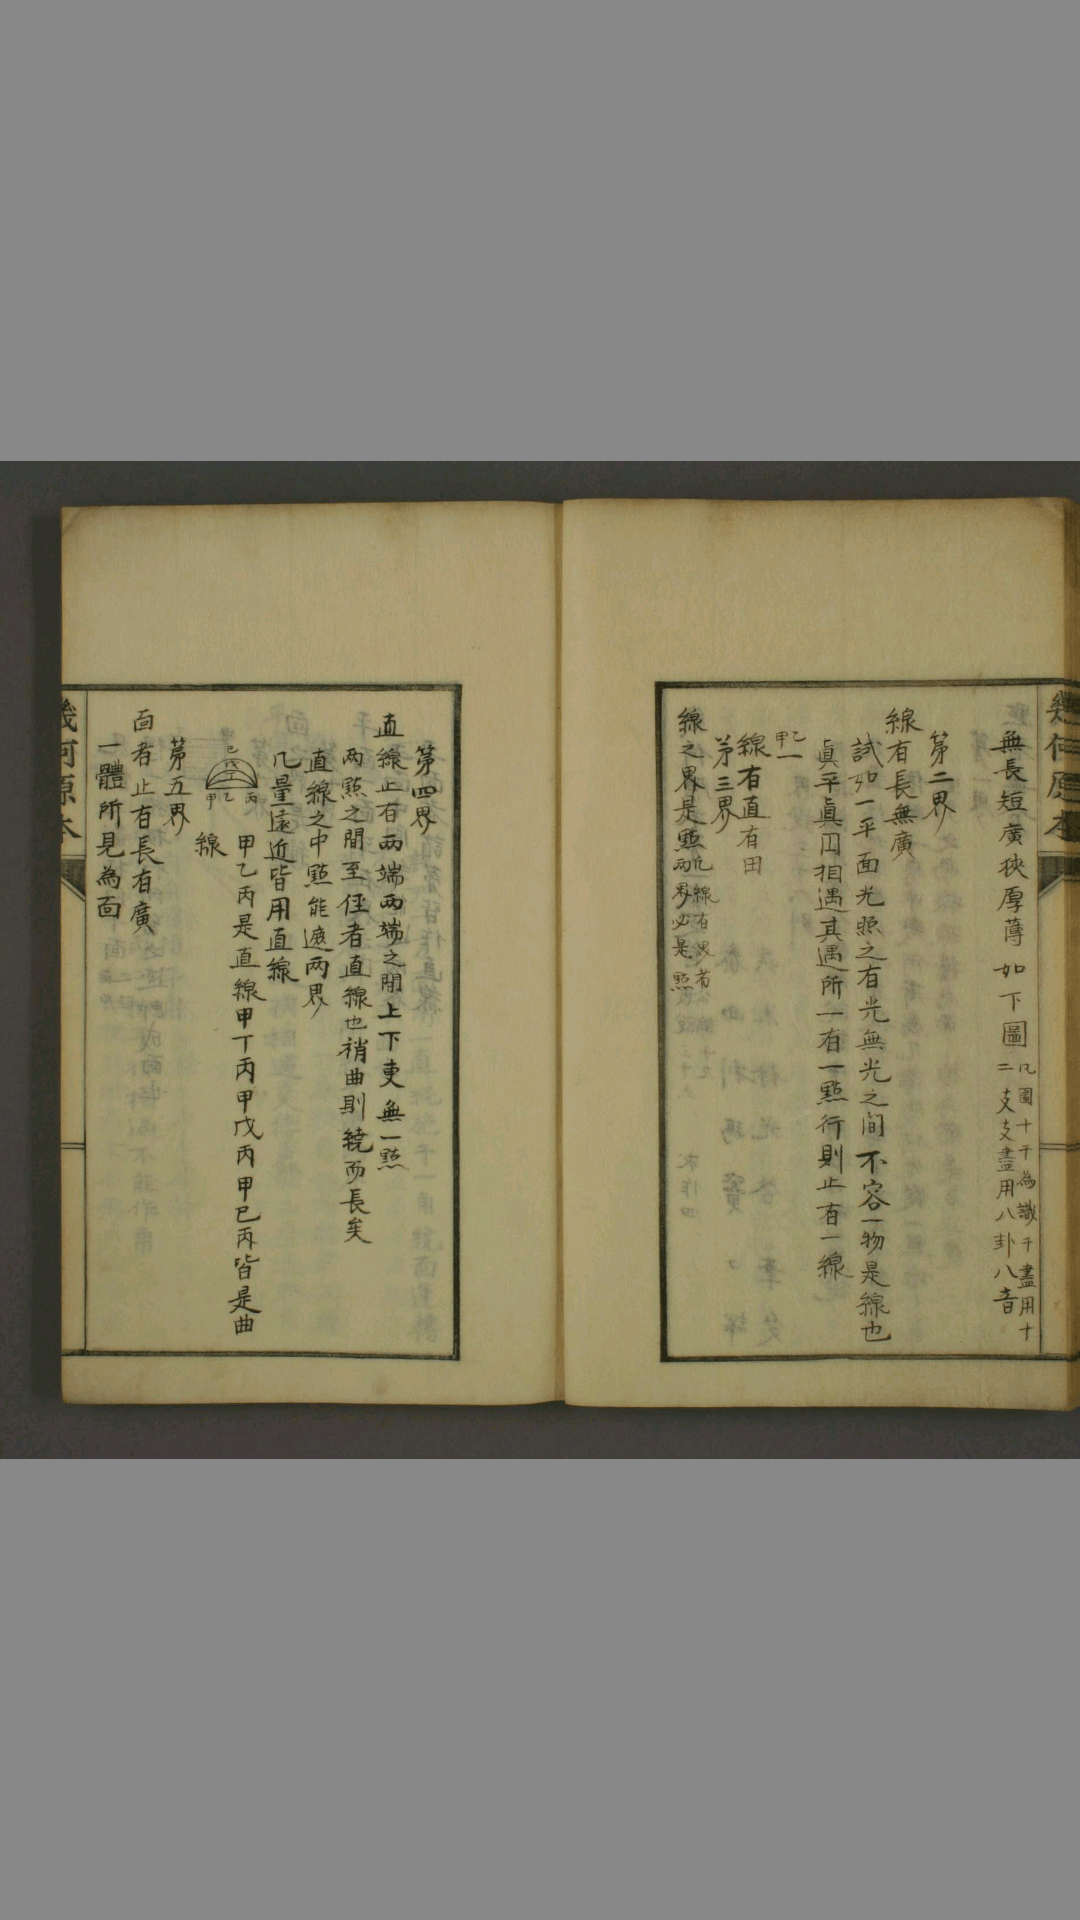 幾何原本
無長短廣狹厚薄 如下圖
凡圖十干為識干盡用十
二支支盡用八卦八音
第二界
線有長無廣
試如一平面光照之有光無光之间不容一物是線也
眞平眞囩相遇其遇所一有一點行則止有一線
甲 乙
線有直有田
第三界
線之界是點
凢線有界者
兩界必是點
第四界
直線止有两端两端之間上下更無一點
两點之間至徑者直線也稍曲則繞而長矣
直線之中點能遮两界
凢量遠近皆用直線
己 戊 丁 甲 乙 丙
甲乙丙是直線甲丁丙甲戊丙甲己丙皆是曲
線
第五界
面者止有長有廣
一體所見為面
幾何原本